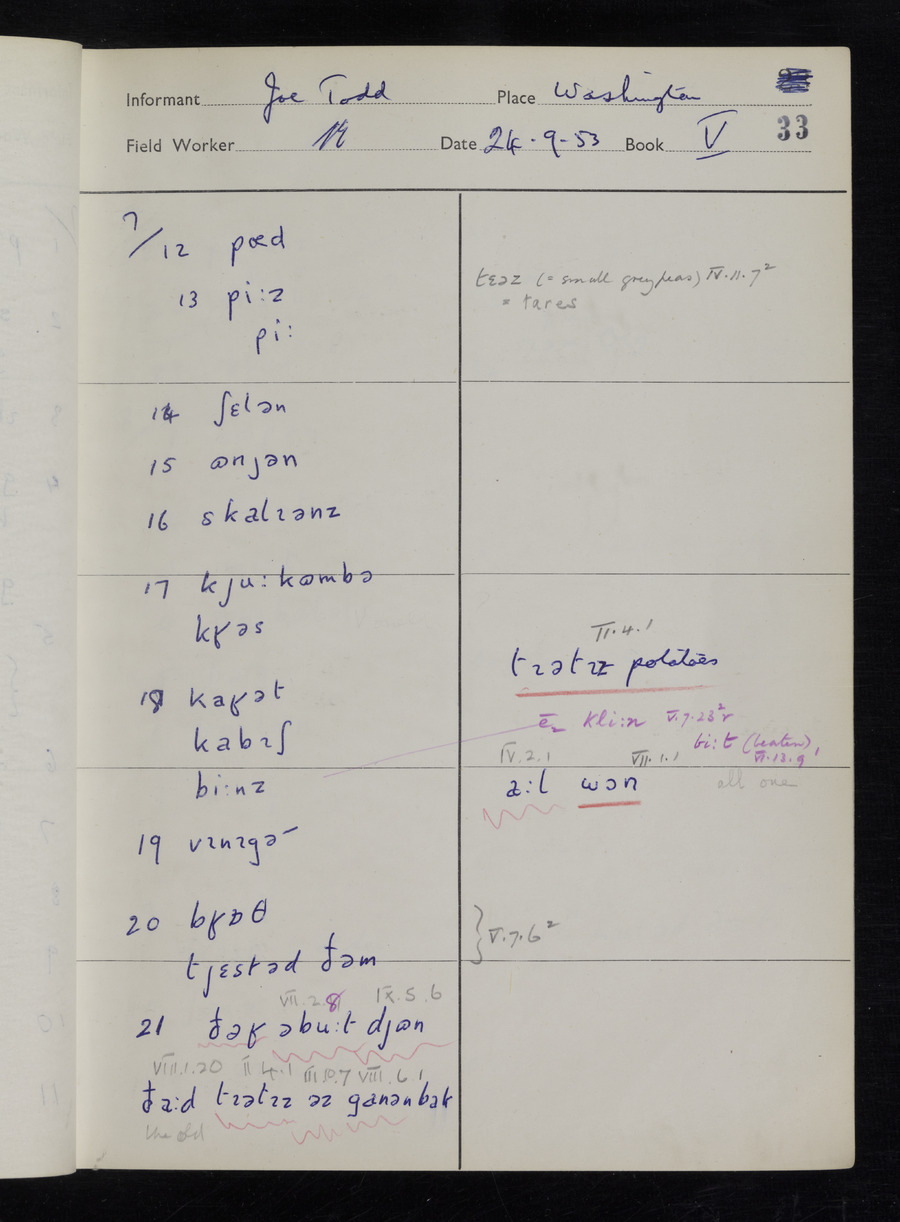 Informant Joe Todd Place Washington
33
Field Worker Date 24-9-53 Book V
7/12 pɶd
13 pi:z
pi:
tɛəz (= small grey peas) IV.11.7²
= tares
14 ʃɛlən
15 ɷnjən
16 skalɪənz
17 kju:kɷmbə
kʁəs
II.4.1
tɪətɪz potatoes
18 kaʁət
kabɪʃ
kli:n V.7.23²
bi:t (beaten),
VI.13.9
IV.2.1 VII.1.1
bi:nz
a:l wɔn all one
19 vɪnɪgə
20 bʁɒθ
} V.7.6²
tjɛstəd ðəm
VII.2.8 IX.5.6
21 ðəʁ əbu:t djɷn
VIII.1.20 II 4.1 III 10.7 VIII.6 1
ða:d tɪətɪz əz ganən bak
the old